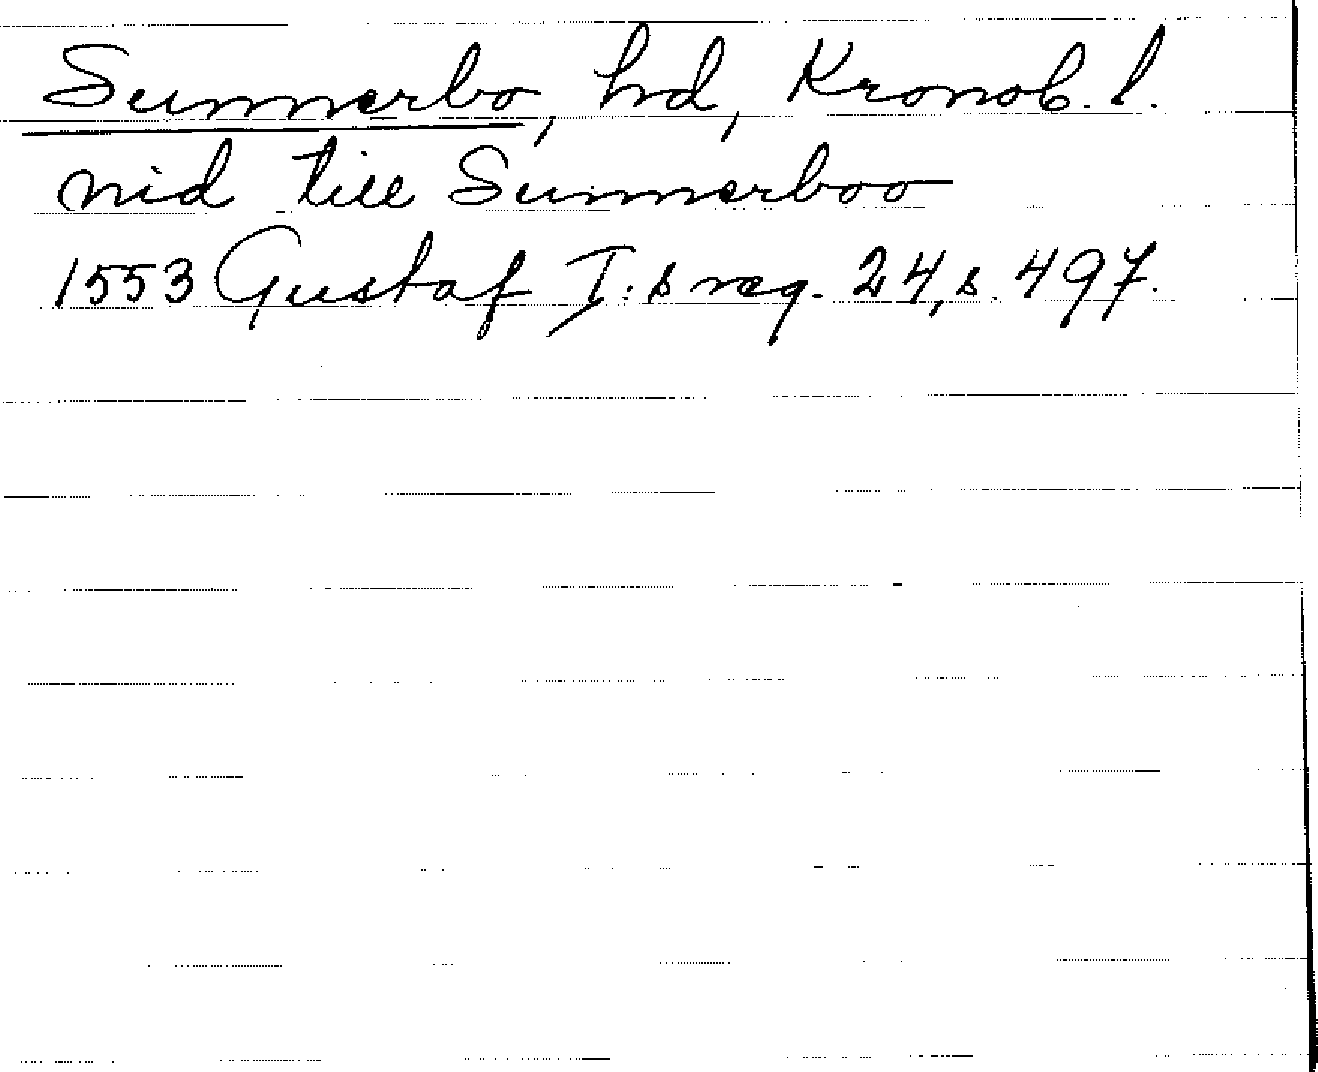 Sunnerbo, hd, Kronob. l.
nid till Sunnerboo
1553 Gustaf I:s reg. 24, s. 497.